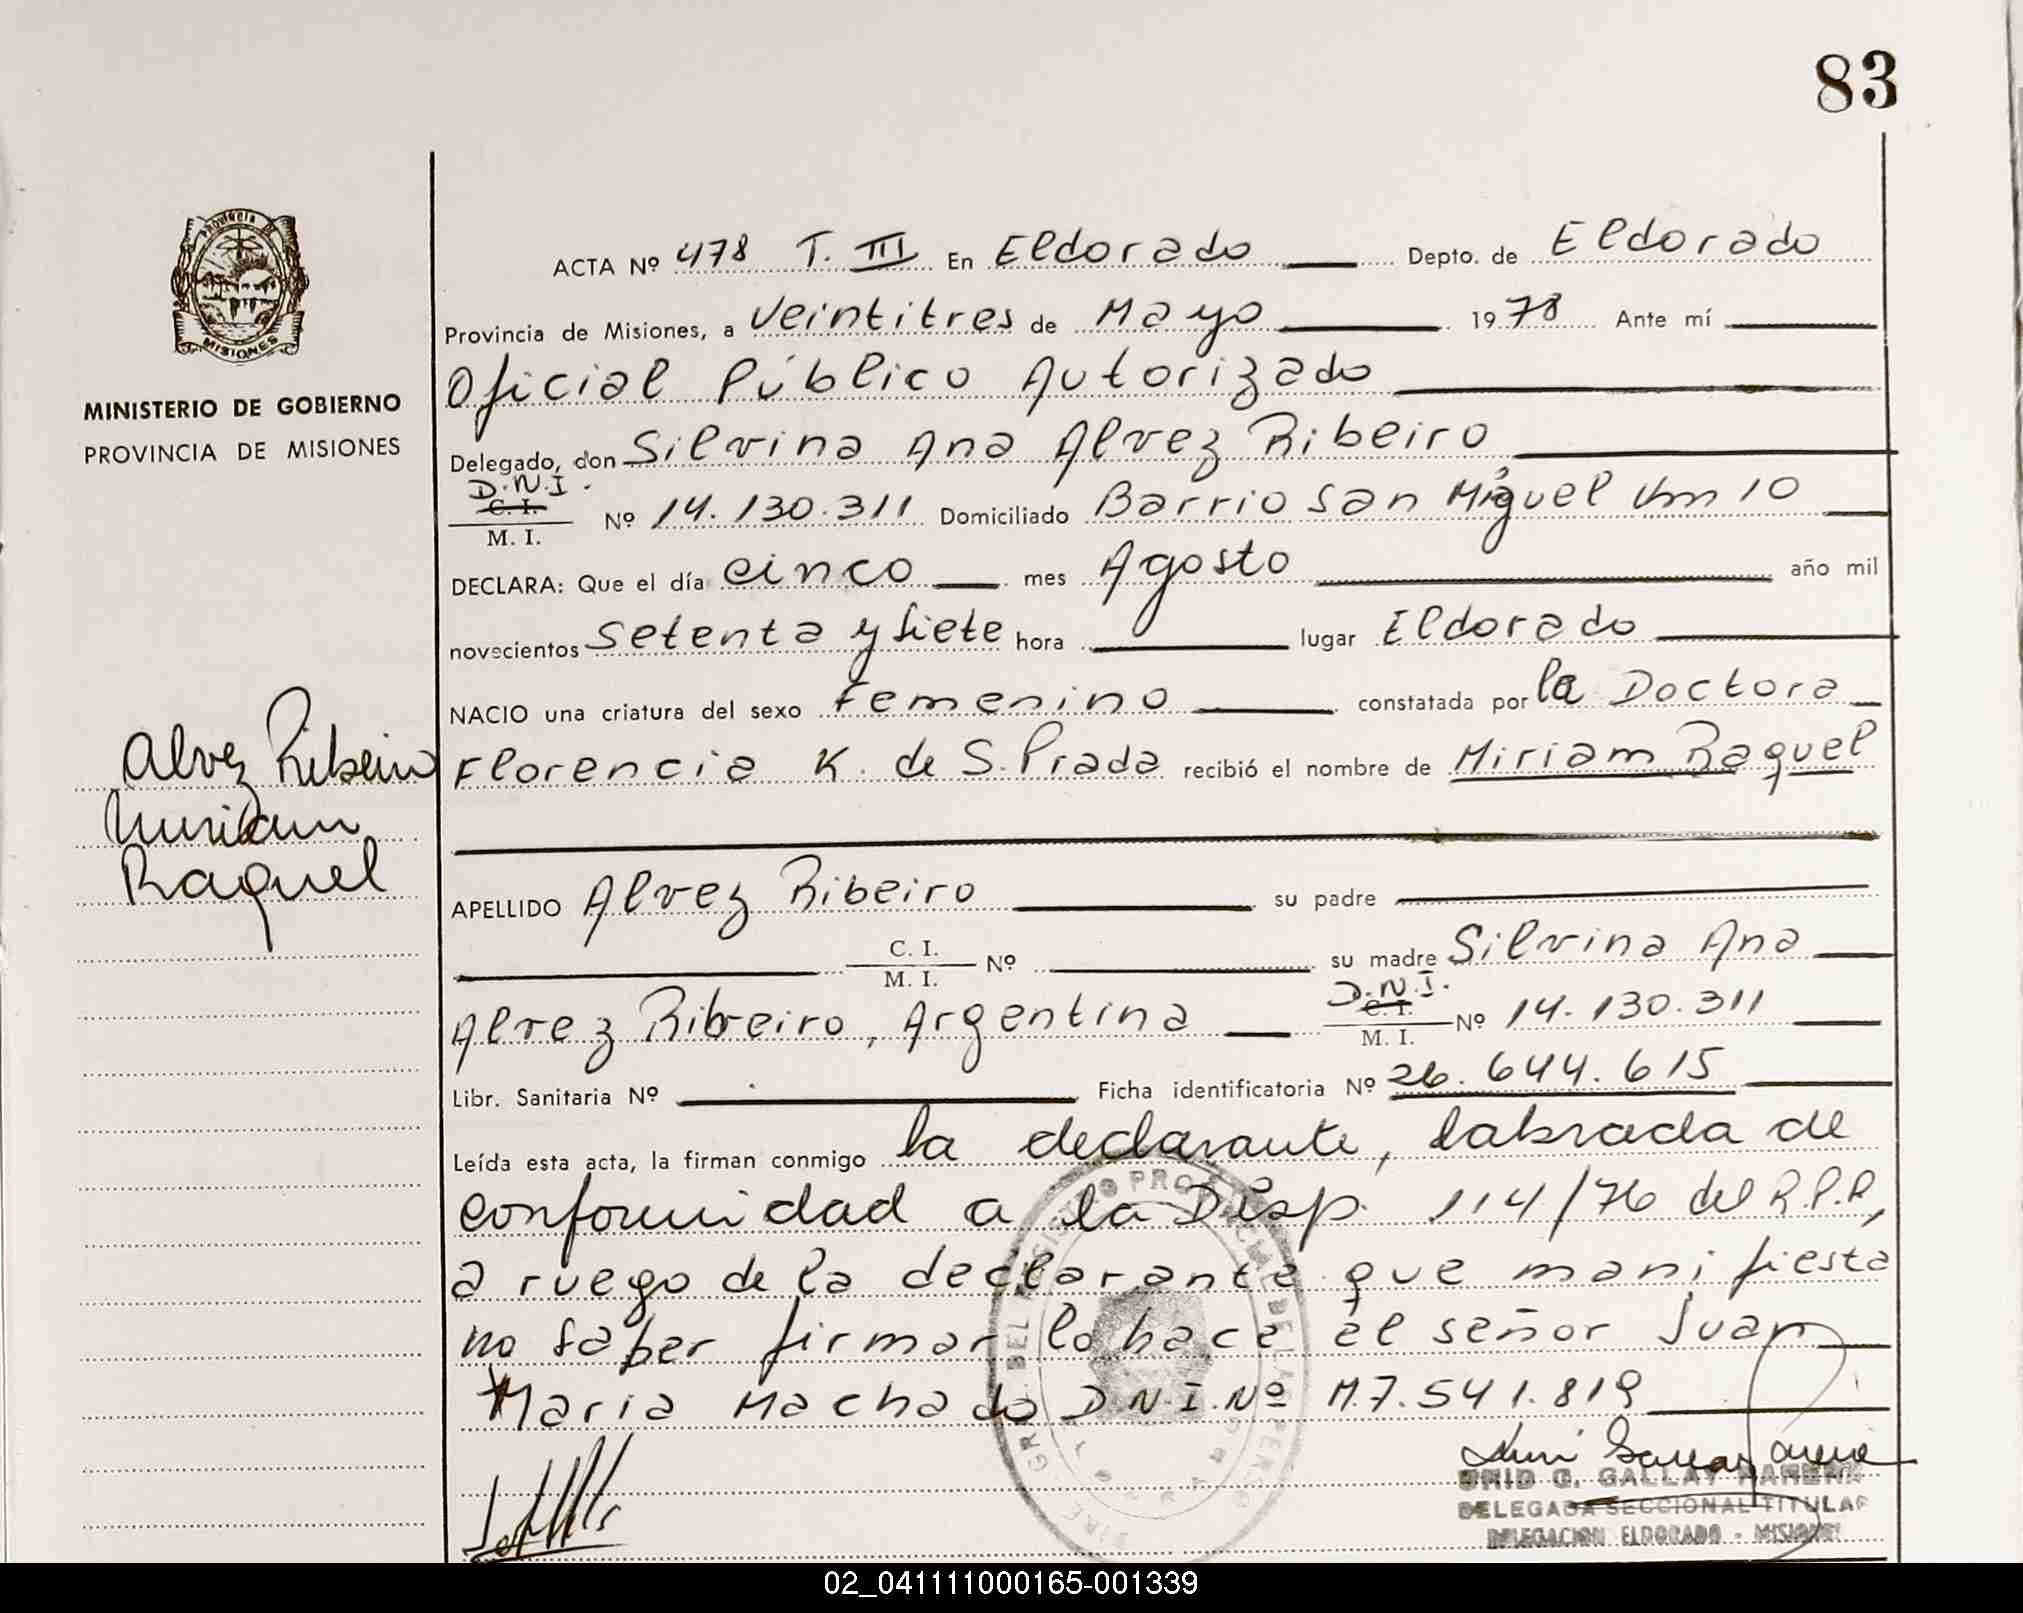 83
PROVINCIA DE
MISIONES
MINISTERIO DE GOBIERNO
PROVINCIA DE MISIONES
ACTA Nº 478 T. III En Eldorado Depto. de Eldorado
Provincia de Misiones, a veintitres de Mayo 1978 Ante mí
Oficial Público Autorizado
Delegado, don Silvina Ana Alvez Ribeiro
D.N.I.
C. I.
M. I.
Nº 14.130.311 Domiciliado Barrio San Miguel Km 10
DECLARA: Que el día cinco mes Agosto año mil
novecientos setenta y siete hora lugar Eldorado
NACIO una criatura del sexo femenino constatada por la Doctora
Florencia K. de S. Prada recibió el nombre de Miriam Raquel
Alvez Ribeiro
Miriam
Raquel
APELLIDO Alvez Ribeiro su padre
C. I.
M. I.
Nº su madre Silvina Ana
Alvez Ribeiro, Argentina
D.N.I.
C. I.
M. I.
Nº 14.130.311
Libr. Sanitaria Nº Ficha identificatoria Nº 26.644.615
Leída esta acta, la firman conmigo la declarante, labrada de
conformidad a la Disp. 114/76 del R.P.P,
a ruego de la declarante que manifiesta
no saber firmar lo hace el señor Juan
Maria Machado D.N.I. Nº M.7.541.819
GALLAY
DELEGADA SECCIONAL TITULAR
DELEGACION ELDORADO - MISIONES
02_041111000165-001339